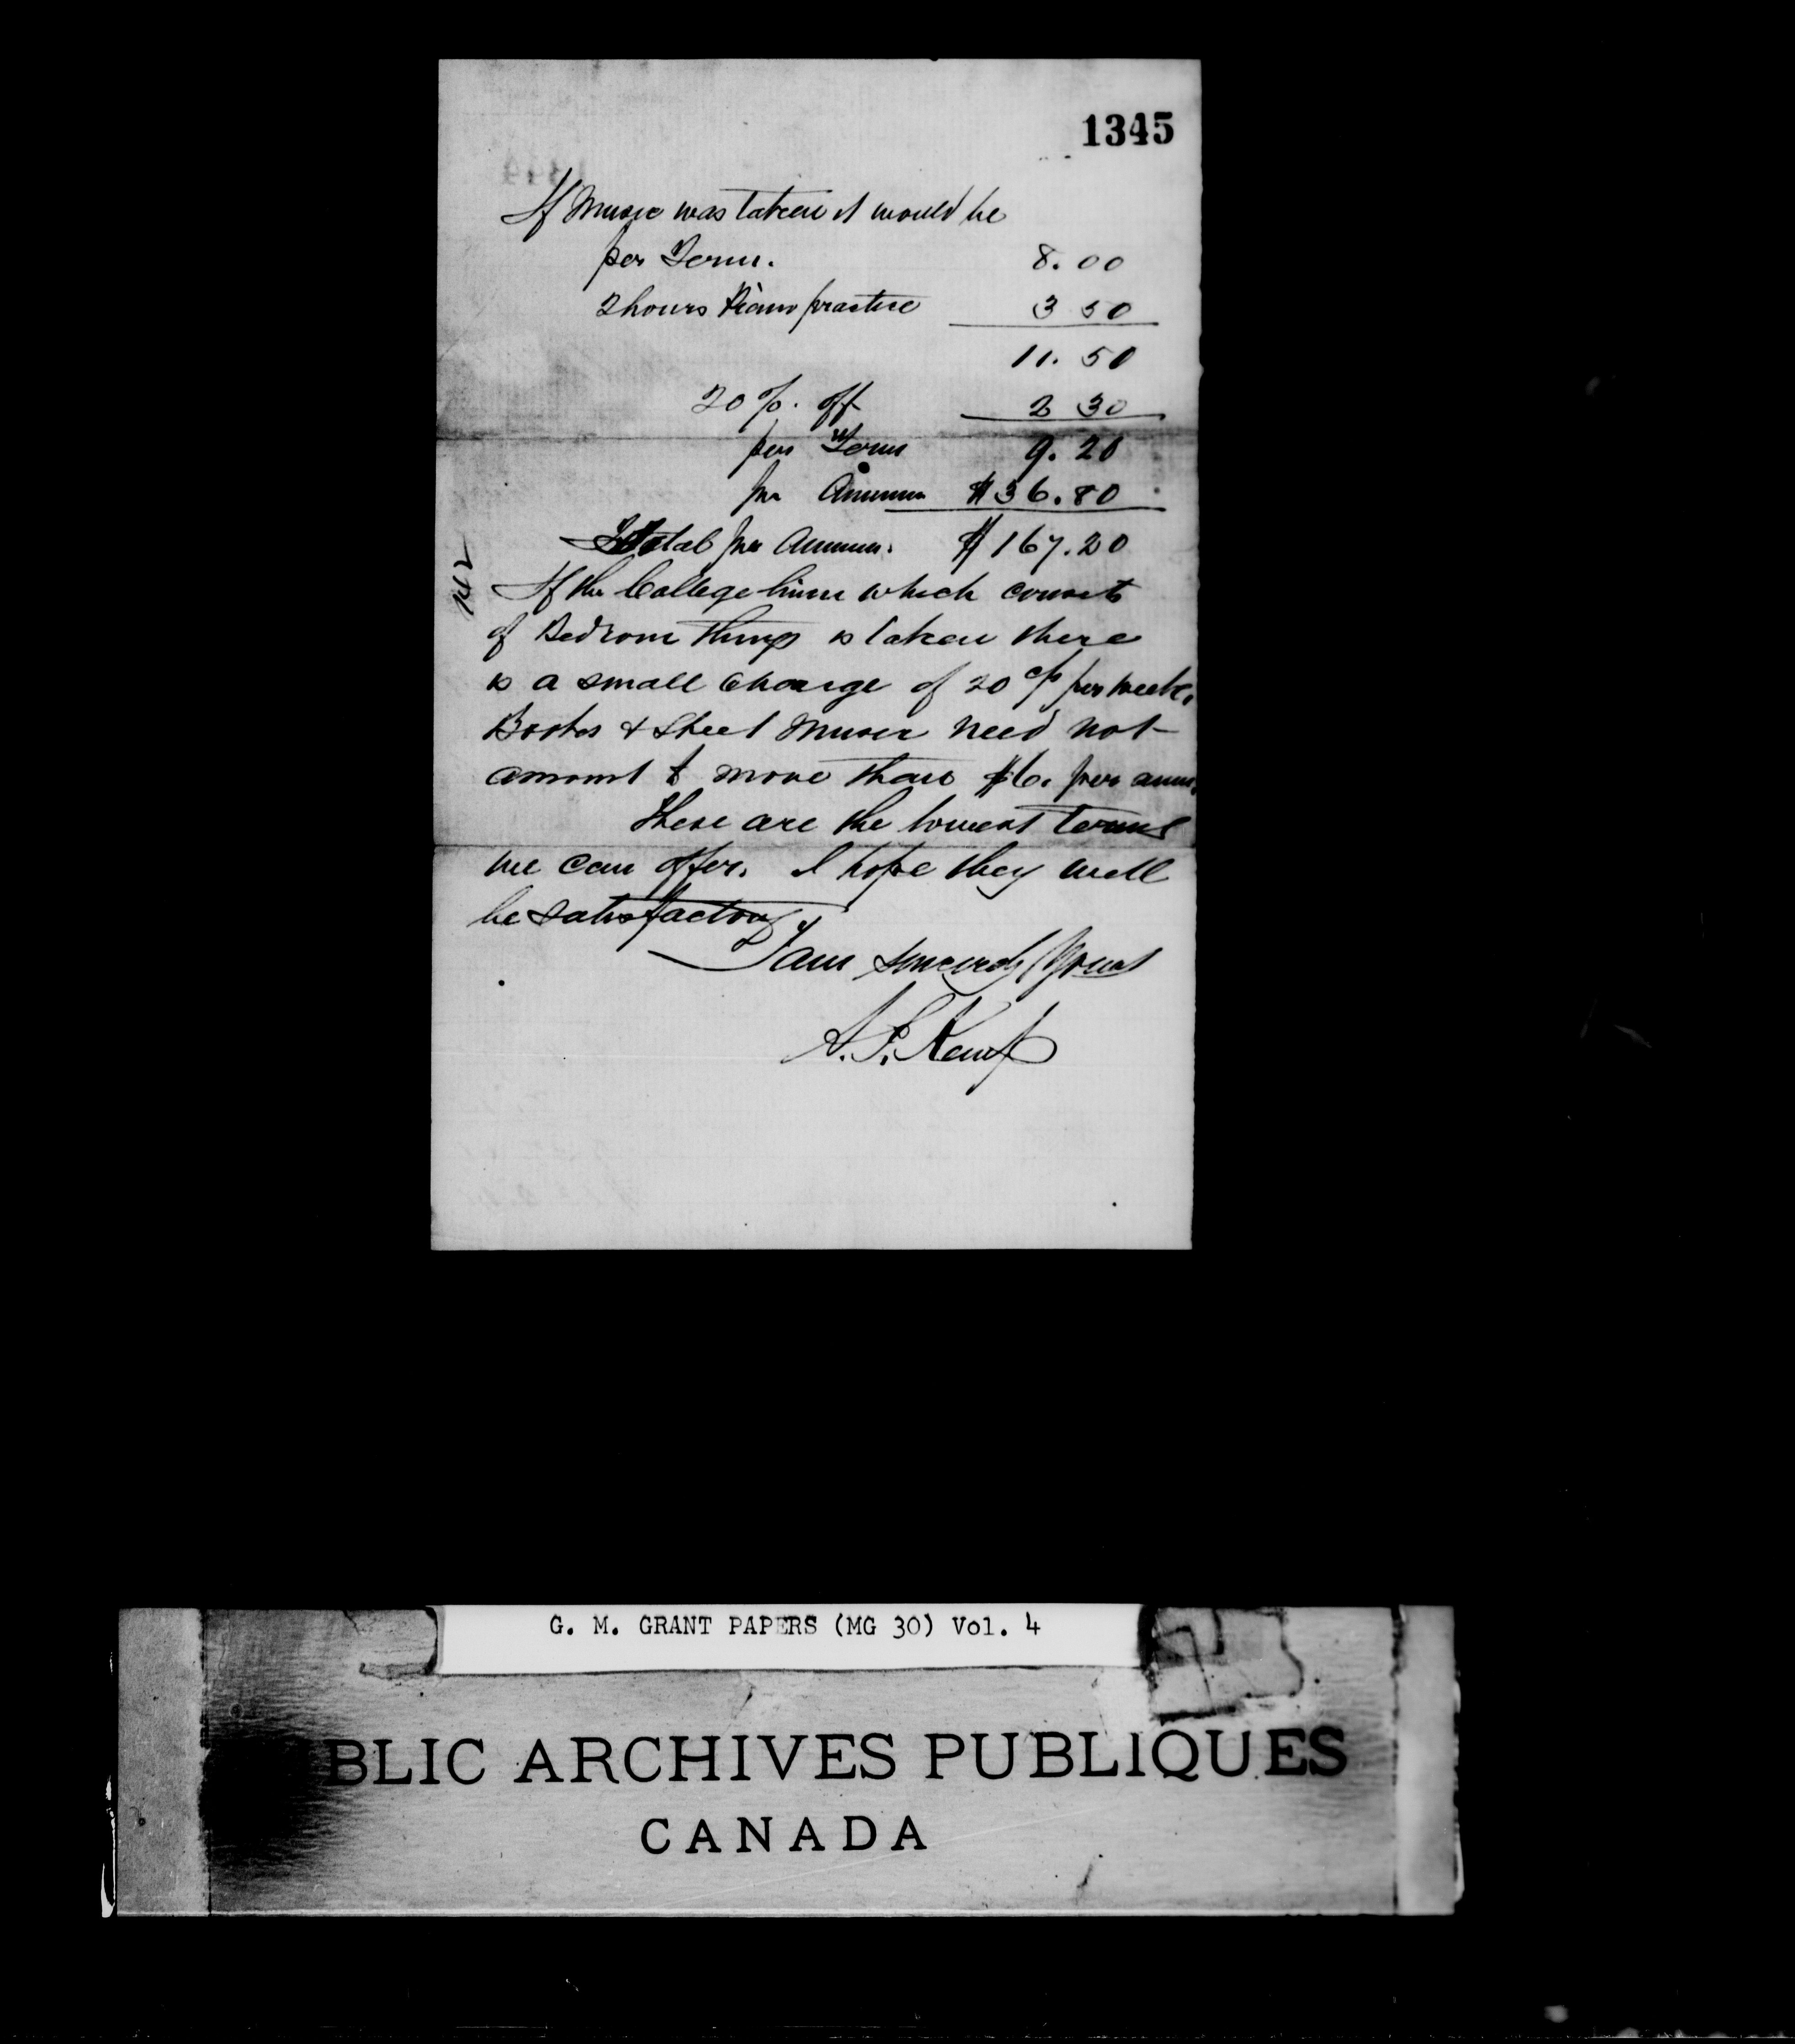 1345
If Music was taken it would be
per Term. 8.00
2 hours Piano practice 3 50
11. 50
20 %. off 2 30
per Term 9. 20
per Annum $36.80
Total per Annum. $167.20
If the College linen which consists
of Bedroom things is taken there
is a small charge of 20 cts per week.
Books & Sheet Music need not
amount to more than $6. per ann.
These are the lowest terms
we can offer. I hope they will
be satisfactory
I am sincerely Yours
A. F. Kemp
G. M. GRANT PAPERS (MG 30) Vol. 4
BLIC ARCHIVES PUBLIQUES
CANADA